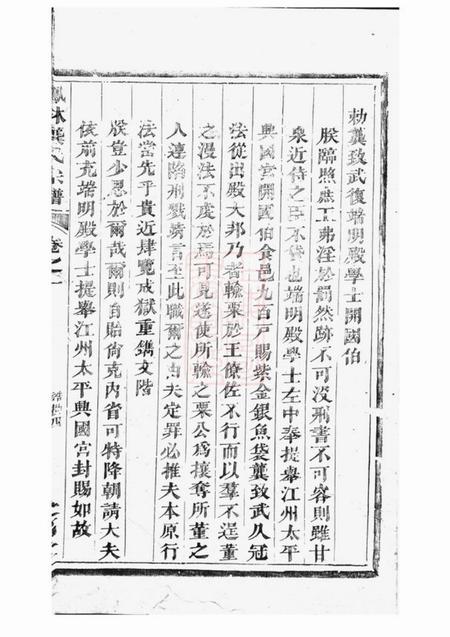 勅龔致武復端明殿學士開國伯
朕臨照庶工弗淫於罰然跡不可沒刑書不可容則雖甘
泉近侍之臣不貸也端明殿學士左中奉提舉江州太平
興國宮開國伯食邑九百戸賜紫金銀魚袋龔致武久冠
法從出殿大邦乃者輸粟於王僚佐不行而以羣不逞董
之漫法不虔於焉可見遂使所輸之粟公爲攘奪所董之
人遽陷刑戮靖言至此職爾之由夫定罪必推夫本原行
法當先乎貴近肆覽成獄重鐫文階
朕豈少忍於爾哉爾則自貽尙克內省可特降朝請大夫
依前充端明殿學士提舉江州太平興國宮封賜如故
鳳林龔氏宗譜
卷之